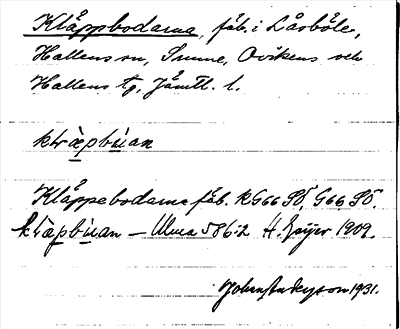 Kläppbodarna, fäb. i Låsböle,
Hallens sn, Sunne, Ovikens och
Hallens tg, Jämtl. l.
klr̀apbùan
Kläppebodarna fäb. KG66 SÖ, G66 SÖ.
klr̀apbùan – Ulma 586:2 H. Geijer 1909.
Johan Anderson 1931.